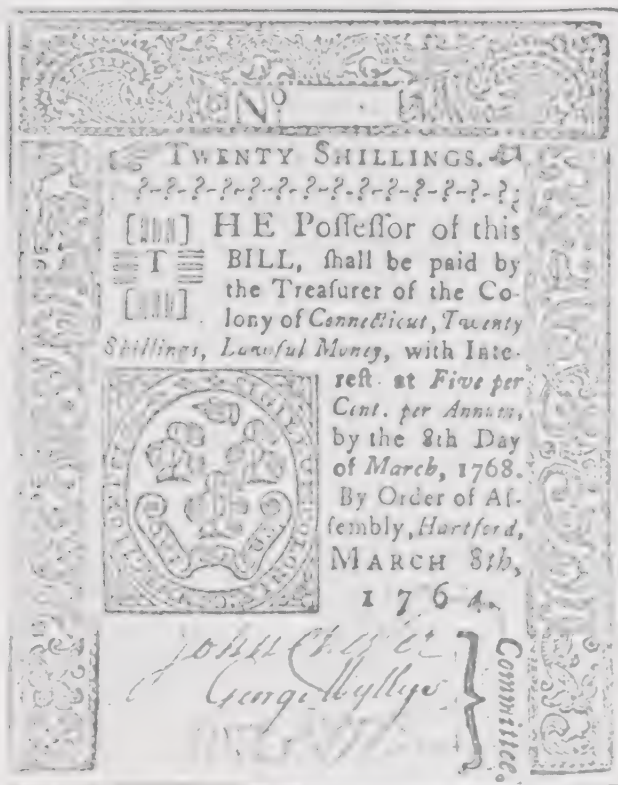 No
TWENTY SHILLINGS.
?-?-?-?-?-?-?-?-?-?-?-?-?-?-?;
THE Poſſeſſor of this
BILL, ſhall be paid by
the Treaſurer of the Co-
lony of Connecticut, Twenty
Shillings, Lawful Money, with Inte-
reſt at Five per
Cent. per Annum,
by the 8th Day
of March, 1768.
By Order of Aſ-
ſembly, Hartford,
MARCH 8th,
1764.
John
George Wyllys
Committee.